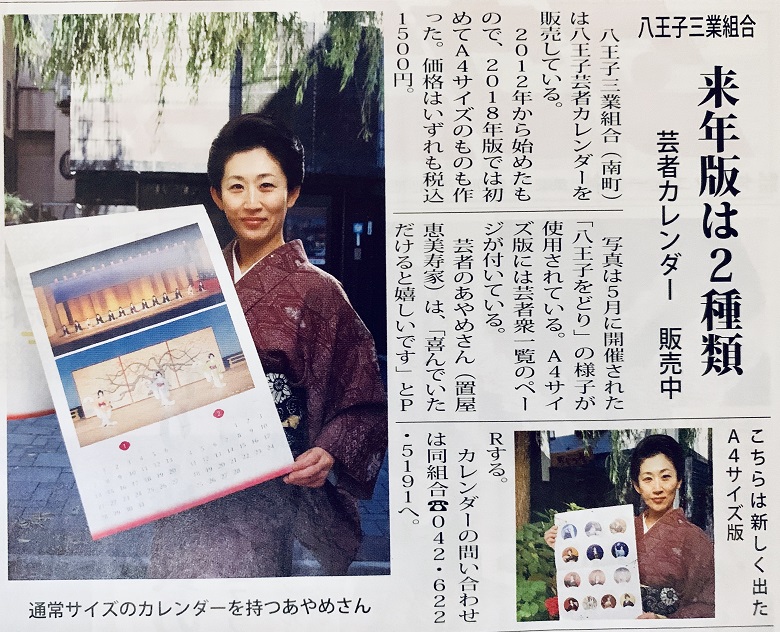 八王子三業組合
来年版は2種類
芸者カレンダー　販売中
八王子三業組合(南町)
は八王子芸者カレンダーを
販売している。
2012年から始めたも
ので、2018年版では初
めてA4サイズのものも作
った。価格はいずれも税込
1500円。
写真は5月に開催された
「八王子をどり」の様子が
使用されている。A4サイ
ズ版には芸者衆一覧のペー
ジが付いている。
芸者のあやめさん(置屋
恵美寿家)は、「喜んでいた
だけると嬉しいです」とP
Rする。
カレンダーの問い合わせ
は同組合☎042・622
・5191へ。
こちらは新しく出た
A4サイズ版
通常サイズのカレンダーを持つあやめさん